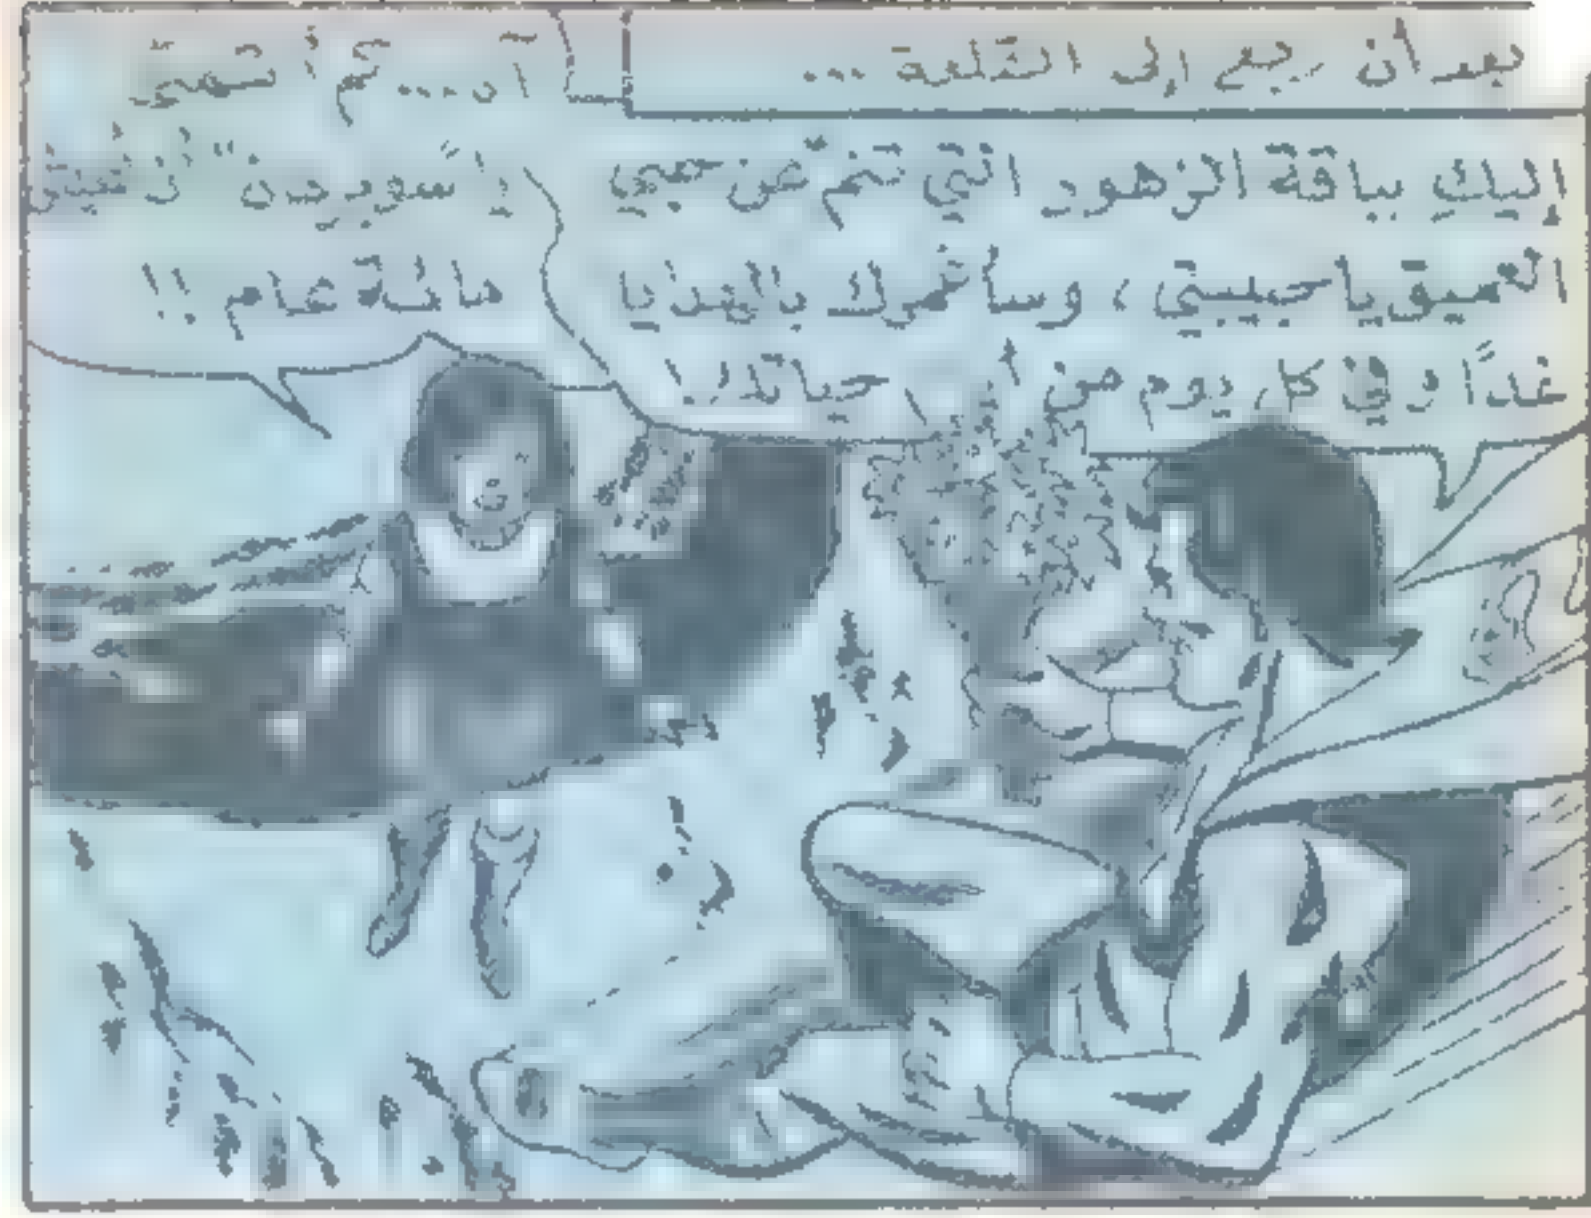 بعد أن رجع إلى القلعة ...
إليك بباقة الزهور التي تنم عن حبي
العميق يا حبيبتي ، وسأغمرك بالهدايا
غدًا وفي كل يوم من حياتك !
آه ... كم أتمنى
يا "سوبرمان" أن تعيش
مائة عام !!